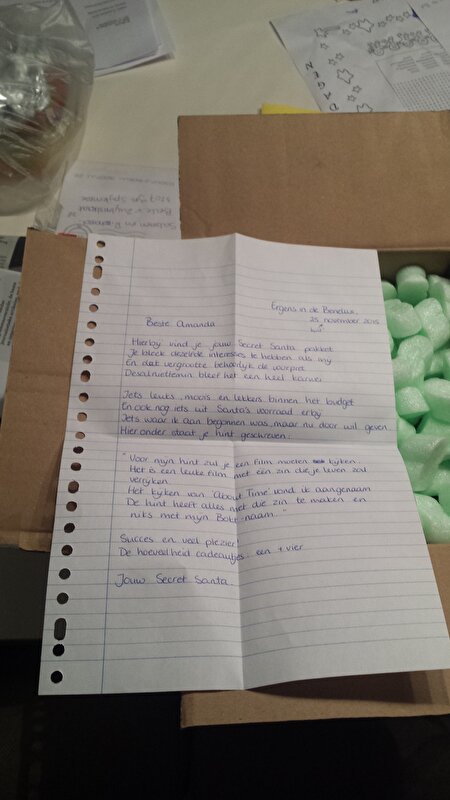 Ergens in de Benelux.
25 november 2015
Beste Amanda
Hierby vind je jouw Secret Santa pakket
Je bleek dezelfde interesses te hebben als my
En dat vergrootte behoorlyk de voorpret
Desalniettemin bleef het een heel karwei
Iets leuks, moois en lekkers binnen het budget
En ook nog iets uit Santa's voorraad erby
Iets waar ik aan begonnen was, maar nu door wil geven.
Hieronder staat je hint geschreven.
"Voor myn hint zul je een film moeten kyken.
Het is een leuke film met een zin die je leven zal
verryken.
Het kyken van 'About Time' vond ik aangenaam
De hint heeft alles met die zin te maken en
niks met myn Boke-naam..."
Succes en veel plezier!
De hoeveelheid cadeautjes: een + vier
Jouw Secret Santa.